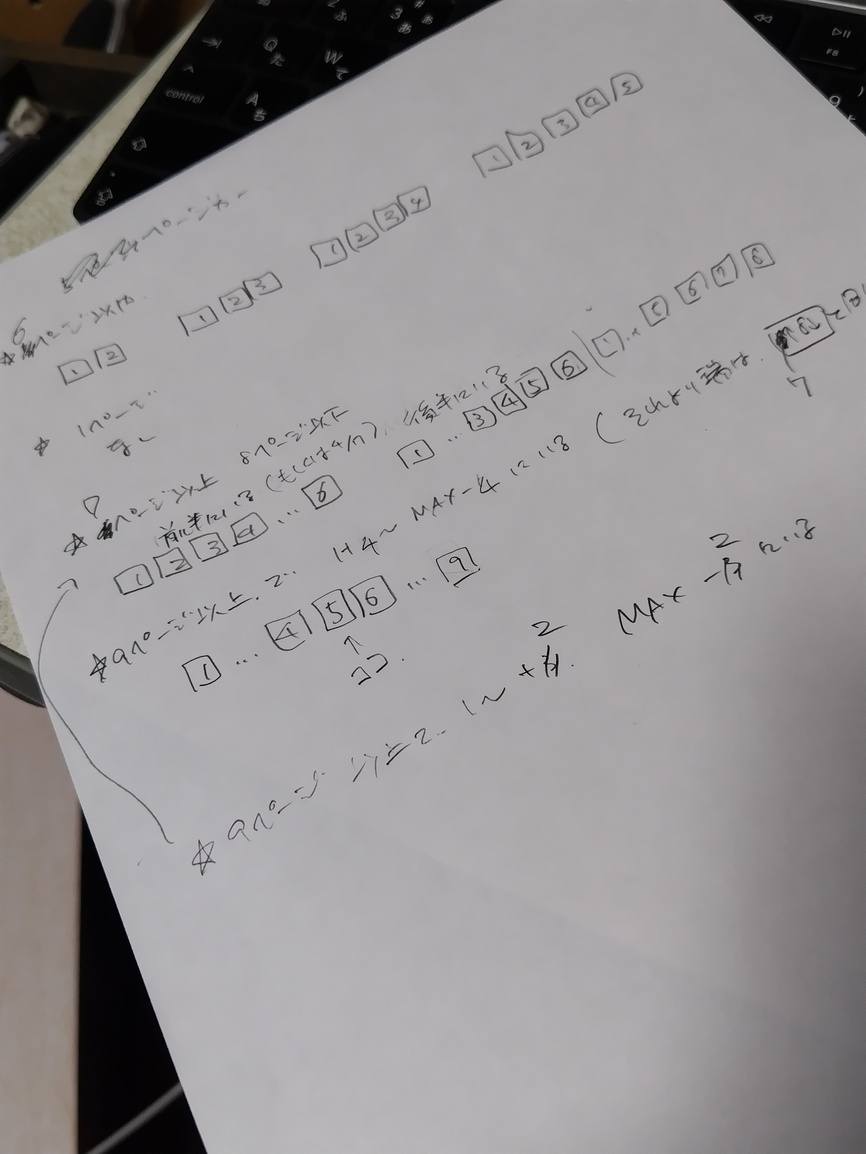 control
A
ち
Q
た
W
て
3
あ
ぁ
F8
ページャー
1 2 3 4 5
☆ 6ページ以内.
1 2
1 2 3
1 2 3 4
☆ 1ページ
なし
☆ 7ページ以上 8ページ以下
前半にいる (もしくは4/7)、後半にいる
1 2 3 4 ... 6
1 ... 3 4 5 6 ( 1 ... 5 6 7 8
☆ 9ページ以上で 1+4~ MAX-4 にいる (それより端は、
7
1 ... 4 5 6 ... 9
↑
ココ.
☆ 9ページ 以上で 1~ +2. MAX -2 にいる